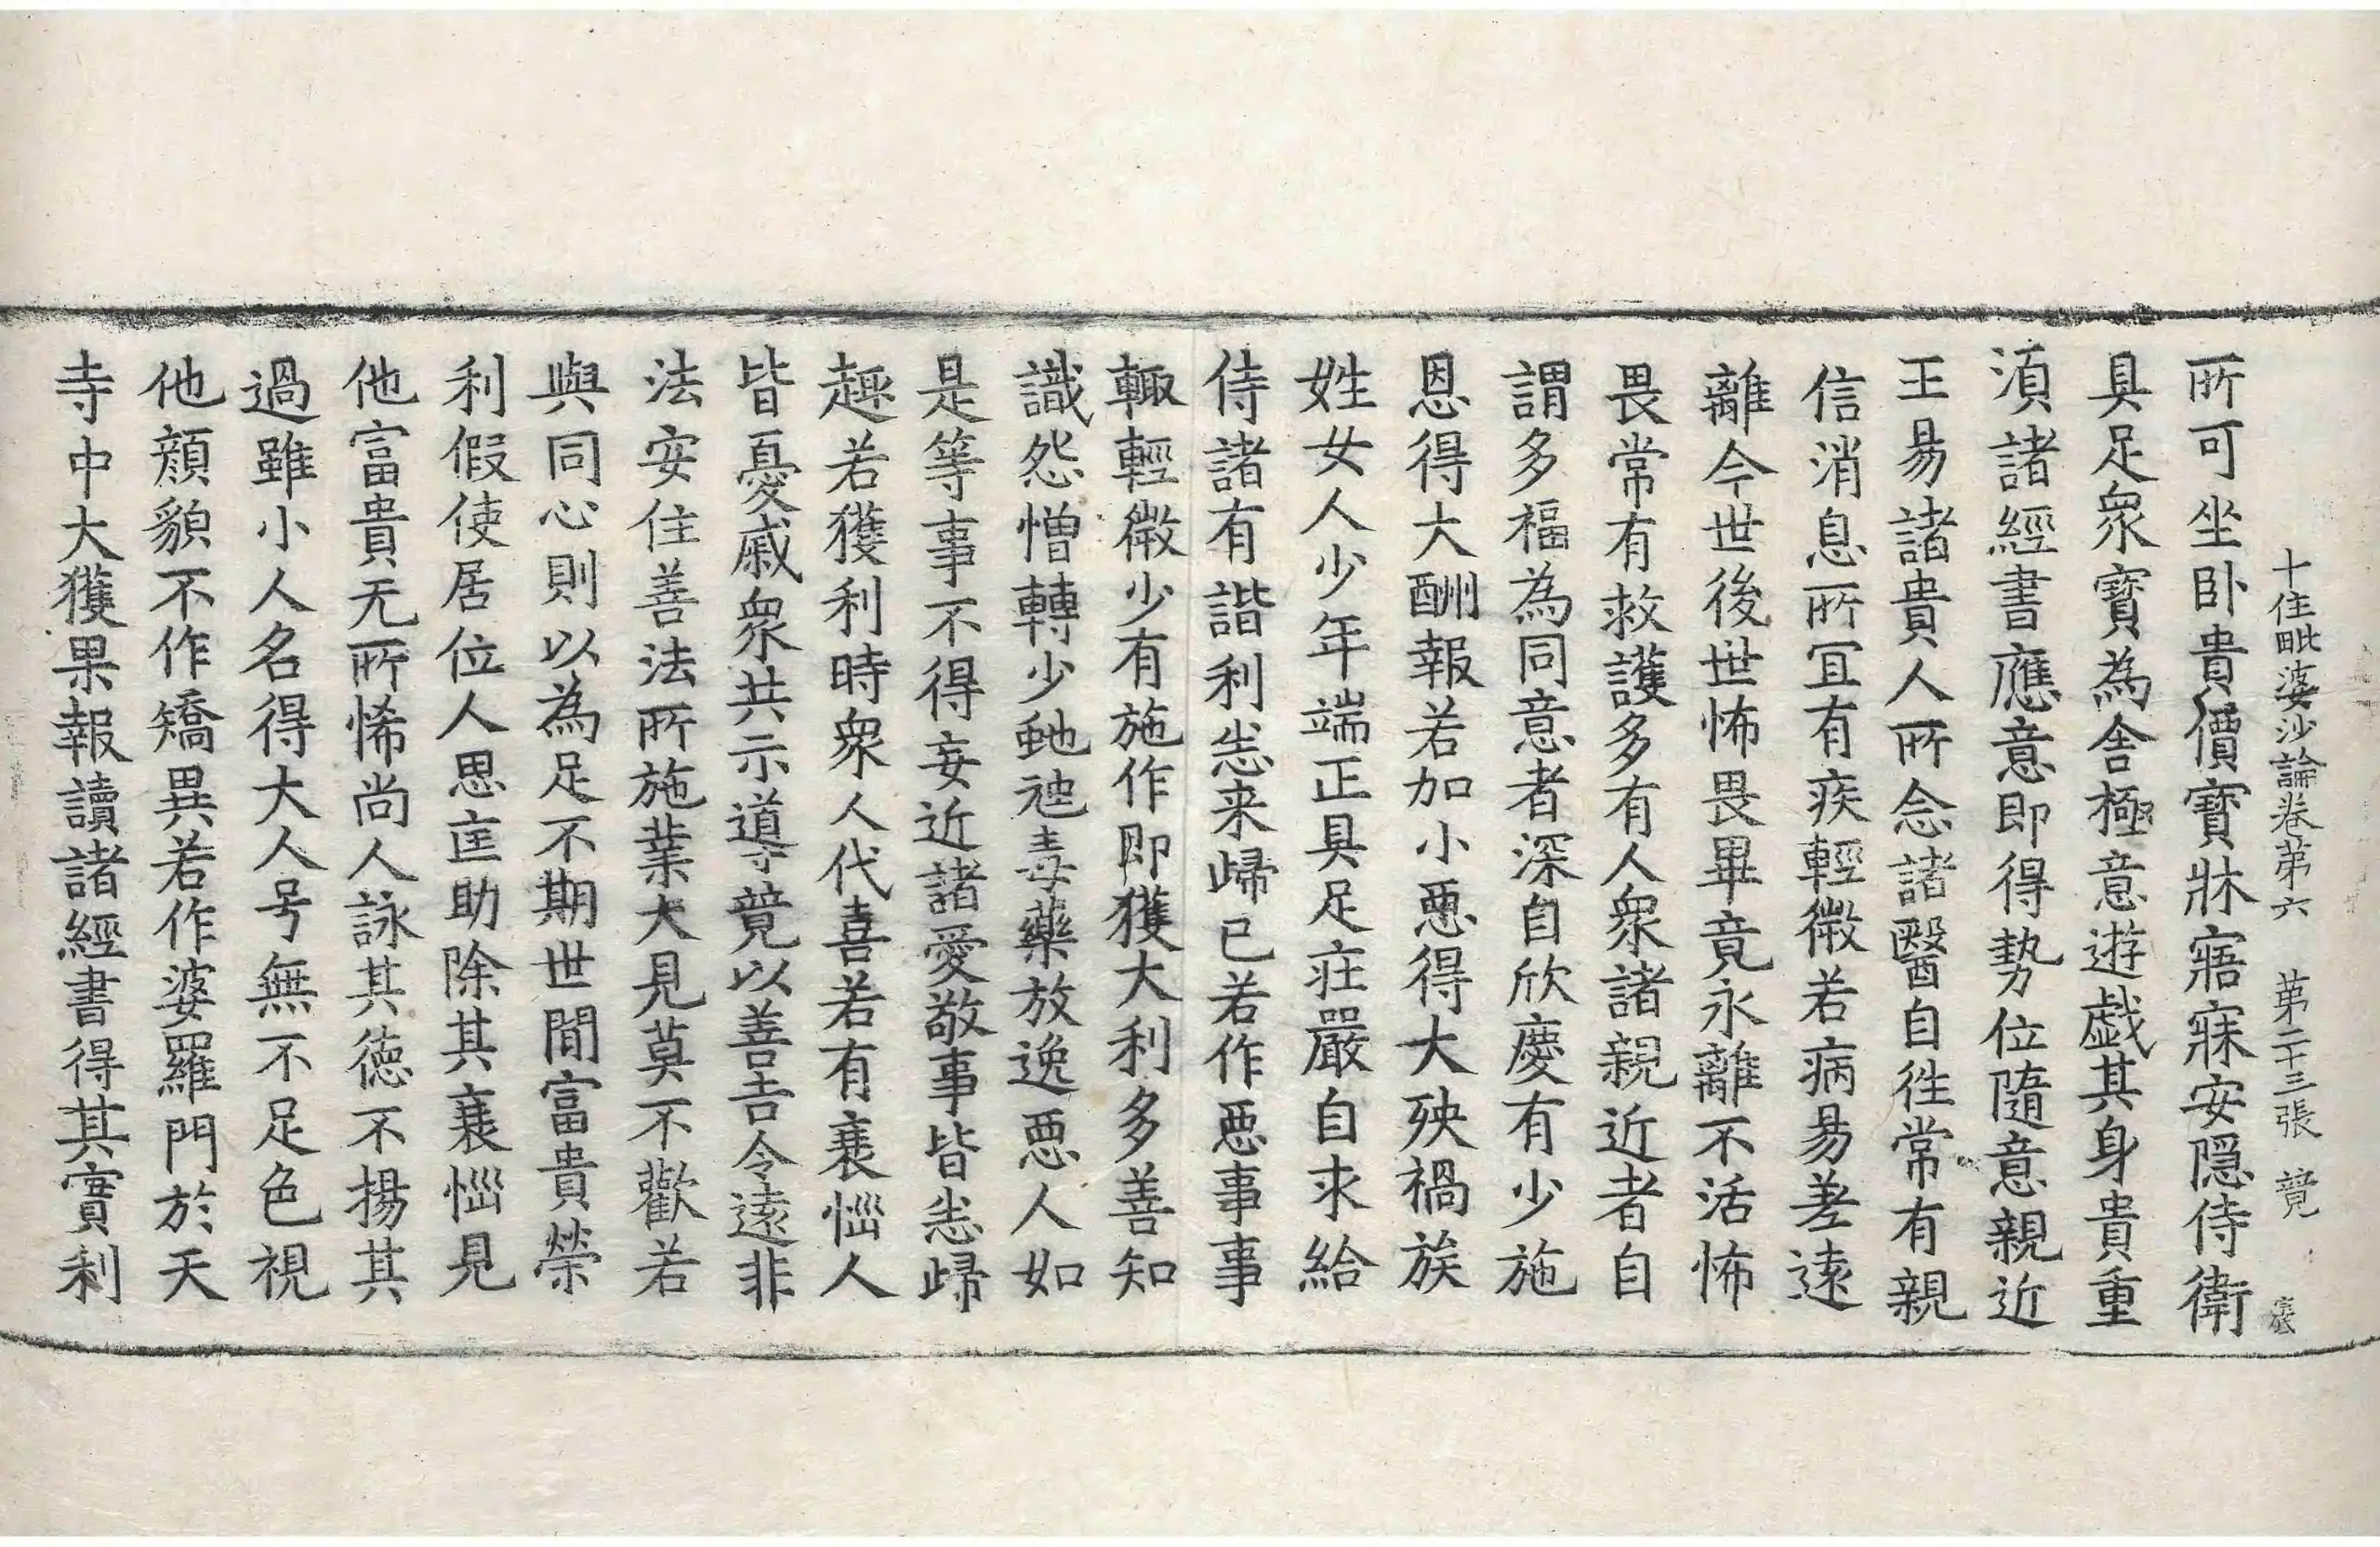 十住毗婆沙論卷第六 第二十三張 競
所可坐卧貴價寳牀寤寐安隠侍衛
具足衆寳為舍極意遊戯其身貴重
湏諸經書應意即得勢位隨意親近
王易諸貴人所念諸醫自徃常有親
信消息所冝有疾輕微若病易差遠
離今世後世怖畏畢竟永離不活怖
畏常有救護多有人衆諸親近者自
謂多福為同意者深自欣慶有少施
恩得大酬報若加小惡得大殃禍族
姓女人少年端正具足莊嚴自求給
侍諸有諧利悉来歸已若作惡事事
輙輕微少有施作即獲大利多善知
識怨憎轉少虵虺毒藥放逸惡人如
是等事不得妄近諸愛敬事皆悉歸
趣若獲利時衆人代喜若有衰惱人
皆憂慼衆共示導競以善吉令遠非
法安住善法所施業大見莫不歡若
與同心則以為足不期世間富貴榮
利假使居位人思匡助除其衰惱見
他富貴无所悕尚人詠其徳不揚其
過雖小人名得大人号無不足色視
他顔貌不作矯異若作婆羅門於天
寺中大獲果報讀諸經書得其實利